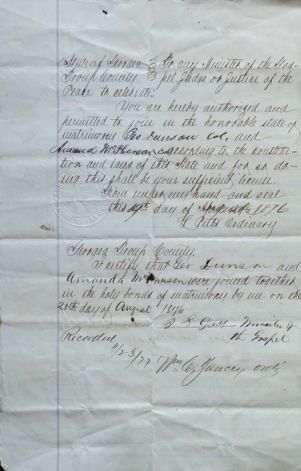 State of Georgia } To any Minister of the Gos-
Troup County } pel, Judge or Justice of the
Peace to celebrate:
You are hereby authorized and
permitted to join in the honorable state of
matrimony Geo Dunson col, and
Amanda according to the constitu-
tion and laws of this State and for so do-
ing this shall be your sufficient license.
Given under my hand and seal
this day of August 1876
Ordinary
Georgia Troup County.
I certify that Geo Dunson and
Amanda were joined together
in the holy bonds of matrimony by me on the
20th day of August 1876
Minister of
the Gospel
Recorded
4/23/77 Wm. C. Yancey Ordy